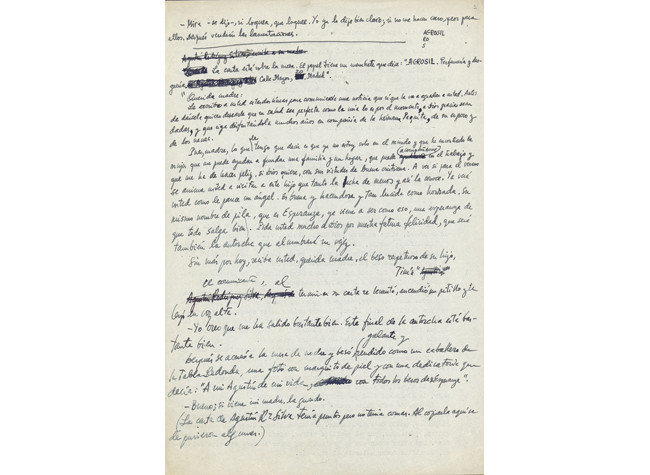 —Mira —se dijo—, si loquea, que loquee. Yo ya lo dije bien claro; si no me hacen caso, peor para
ellos. Después vendrán las lamentaciones.
AGROSIL
20
S
La carta está sobre la mesa. El papel tiene un membrete que dice: "AGROSIL. Perfumería y dro-
guería. Calle Mayor, 20, Madrid."
"Querida madre:
Le escribo a usted estas dos líneas para comunicarle una noticia que sé que le va a agradar a usted, ante
de desearle quiero que en su salud sea perfecta como la mía lo es por el momento, a Dios gracias sean
dadas, y que siga disfrutándola muchos años en compañía de la hermana Paquita, de su esposo y
de los nenes.
Pues, madre, lo que le tengo que decir es que ya no estoy solo en el mundo y que he encontrado la
mujer que me puede ayudar a fundar una familia y un hogar, que puede acompañarme en el trabajo y
que me ha de hacer feliz, si Dios quiere, con sus virtudes de buena cristiana. A ver si para el verano
se anima usted a visitar a este hijo que tanto la echa de menos y así la conoce. Ya verá
usted como le parece un ángel. Es buena y hacendosa y tan lucida como honrada. Su
mismo nombre de pila, que es Esperanza, ya viene a ser como eso, una esperanza de
que todo salga bien. Pida usted mucho a Dios por nuestra futura felicidad, que será
también la antorcha que alumbrará su vejez.
Sin más por hoy, reciba usted, querida madre, el beso respetuoso de su hijo,
Tinín"
El comerciante, al terminar su carta se levantó, encendió un pitillo y la
leyó en voz alta.
—Yo creo que me ha salido bastante bien. Este final de la antorcha está bas-
tante bien.
Después se acercó a la mesa de noche y besó, galante y rendido como un caballero de
la Tabla Redonda, una foto con marquito de piel y con una dedicatoria que
decía: "A mi Agustín de mi vida, con todos los besos de su Esperanza".
—Bueno, si viene mi madre, la guardo.
(La carta de Agustín Rz. Silva tenía puntos pero no tenía comas. Al copiarla aquí se
le pusieron algunas.)